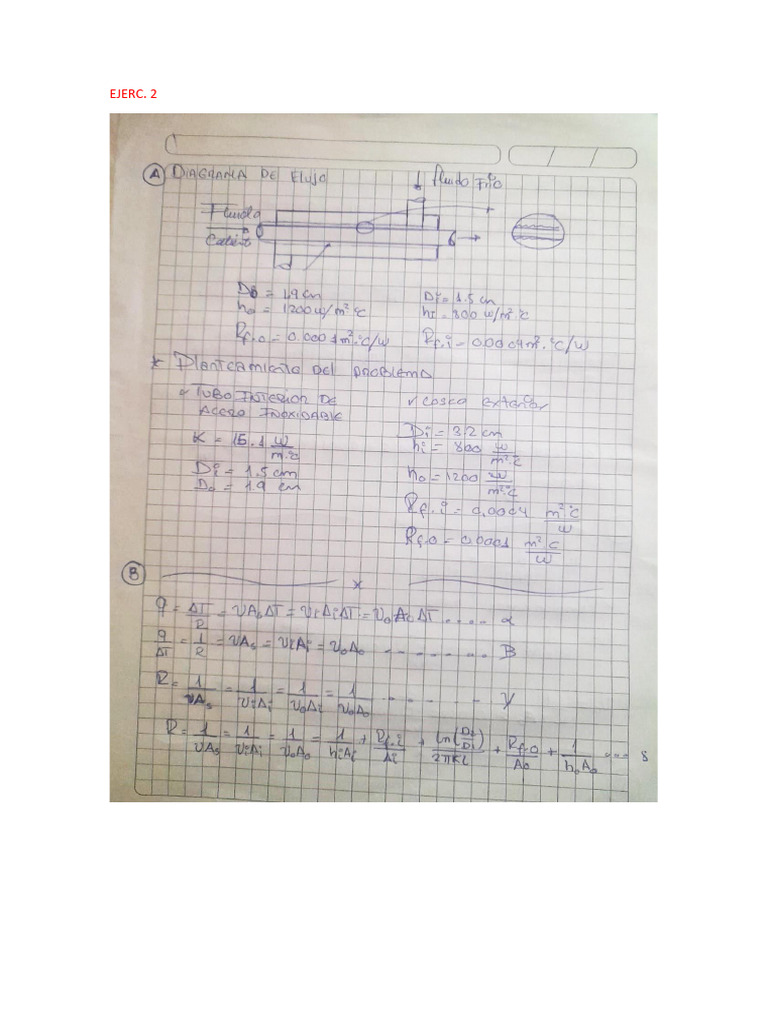 EJERC. 2
A DIAGRAMA DE FLUJO
fluido Frio
Fluido
Calient
Do = 1.9 cm
Di = 1.5 cm
ho = 1200 w/m².°C
hi = 800 w/m².°C
Rf.o = 0.0001 m².°C/w
Rf.i = 0.0004 m².°C/w
* Planteamiento del problema
✓ TUBO INTERIOR DE ACERO INOXIDABLE
K = 15.1 w/m.°C
Di = 1.5 cm
Do = 1.9 cm
✓ cosca exterior
Di = 3.2 cm
hi = 800 w/m².°C
ho = 1200 w/m².°C
Rf.i = 0.0004 m².°C/w
Rf.o = 0.0001 m².°C/w
B
*
q = ΔT/R = UAsΔT = UiAiΔT = UoAoΔT ..... α
q/ΔT = 1/R = UAs = UiAi = UoAo ........ B
R = 1/UAs = 1/UiAi = 1/UoAi = 1/UoAo ....... γ
R = 1/UAs = 1/UiAi = 1/UoAo = 1/hiAi + Rf.i/Ai + ln(Do/Di)/2πKL + Rf.o/Ao + 1/hoAo .... δ